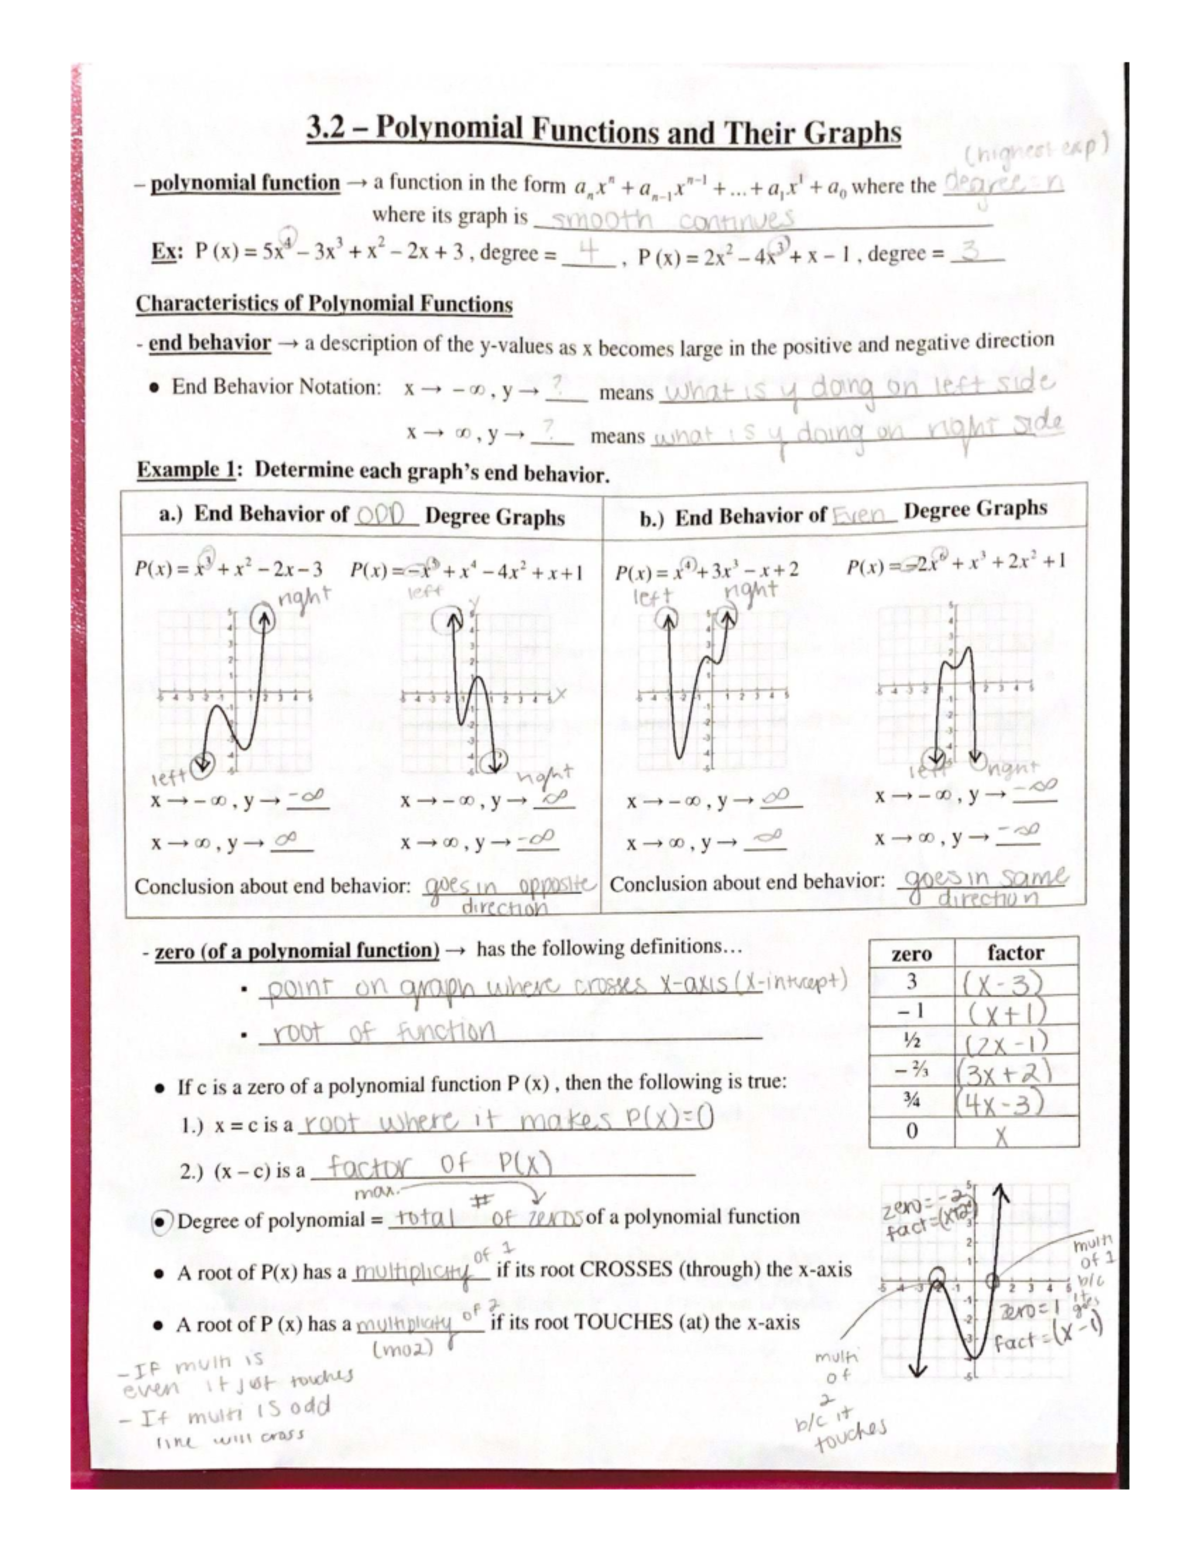 3.2 – Polynomial Functions and Their Graphs
(highest exp)
– polynomial function → a function in the form aₙxⁿ + aₙ₋₁xⁿ⁻¹ + ... + a₁x¹ + a₀ where the degree = n
where its graph is smooth continues
Ex: P (x) = 5x⁴ – 3x³ + x² – 2x + 3 , degree = 4 , P (x) = 2x² – 4x³ + x – 1 , degree = 3
Characteristics of Polynomial Functions
- end behavior → a description of the y-values as x becomes large in the positive and negative direction
• End Behavior Notation: x → – ∞ , y → ? means what is y doing on left side
x → ∞ , y → ? means what is y doing on right side
Example 1: Determine each graph's end behavior.
a.) End Behavior of ODD Degree Graphs
b.) End Behavior of Even Degree Graphs
P(x) = x³ + x² – 2x – 3 P(x) = –x⁵ + x⁴ – 4x² + x + 1
P(x) = x⁴ + 3x³ – x + 2 P(x) = –2x⁶ + x³ + 2x² + 1
right left left right
left right left right
x → – ∞ , y → –∞ x → – ∞ , y → ∞ x → – ∞ , y → ∞ x → – ∞ , y → –∞
x → ∞ , y → ∞ x → ∞ , y → –∞ x → ∞ , y → ∞ x → ∞ , y → –∞
Conclusion about end behavior: goes in opposite
direction
Conclusion about end behavior: goes in same
direction
- zero (of a polynomial function) → has the following definitions…
• point on graph where crosses x-axis (x-intrcept)
• root of function
zero factor
3 (x-3)
– 1 (x+1)
½ (2x-1)
– ⅔ (3x+2)
¾ (4x-3)
0 x
• If c is a zero of a polynomial function P (x) , then the following is true:
1.) x = c is a root where it makes P(x)=0
2.) (x – c) is a factor of P(x)
max.
• Degree of polynomial = total # of zeros of a polynomial function
• A root of P(x) has a multiplicity of 1 if its root CROSSES (through) the x-axis
• A root of P (x) has a multiplicity of 2 if its root TOUCHES (at) the x-axis
(mo2)
- If multi is
even it just touches
- If multi is odd
line will cross
zero=-2
fact=(x+2)
multi
of 1
b/c
it
goes
zero=1
fact=(x-1)
multi
of
2
b/c it
touches